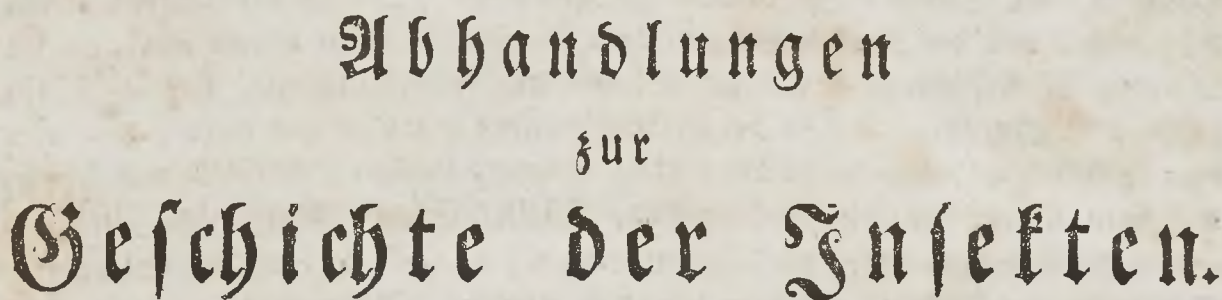 Abhandlungen
zur
Geſchichte der Inſekten.